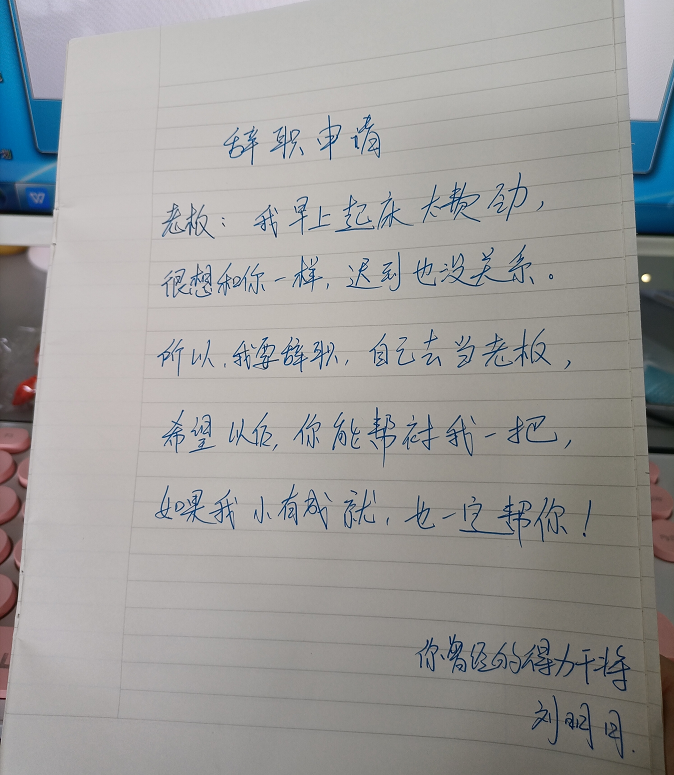 辞职申请
老板：我早上起床太费劲，
很想和你一样，迟到也没关系。
所以，我要辞职，自己去当老板，
希望以后，你能帮衬我一把，
如果我小有成就，也一定帮你！
你曾经的得力干将
刘明月.